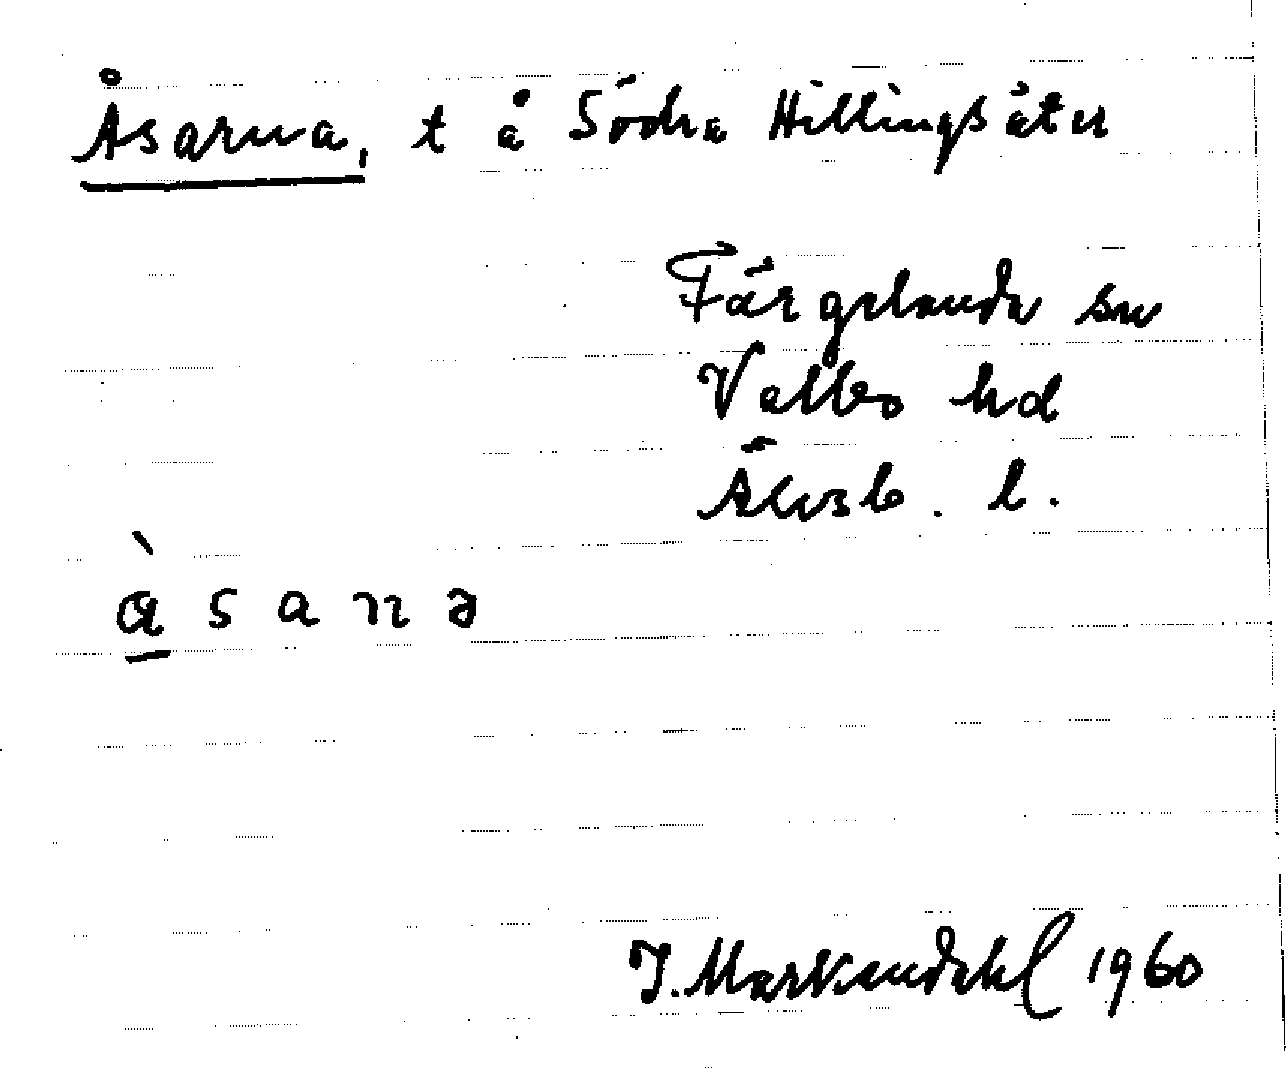 Åsarna, t å Södra Hillingsäter
Färgelanda sn
Valbo hd
Älvsb. l.
å̀ s a n ə
I. Markendahl 1960